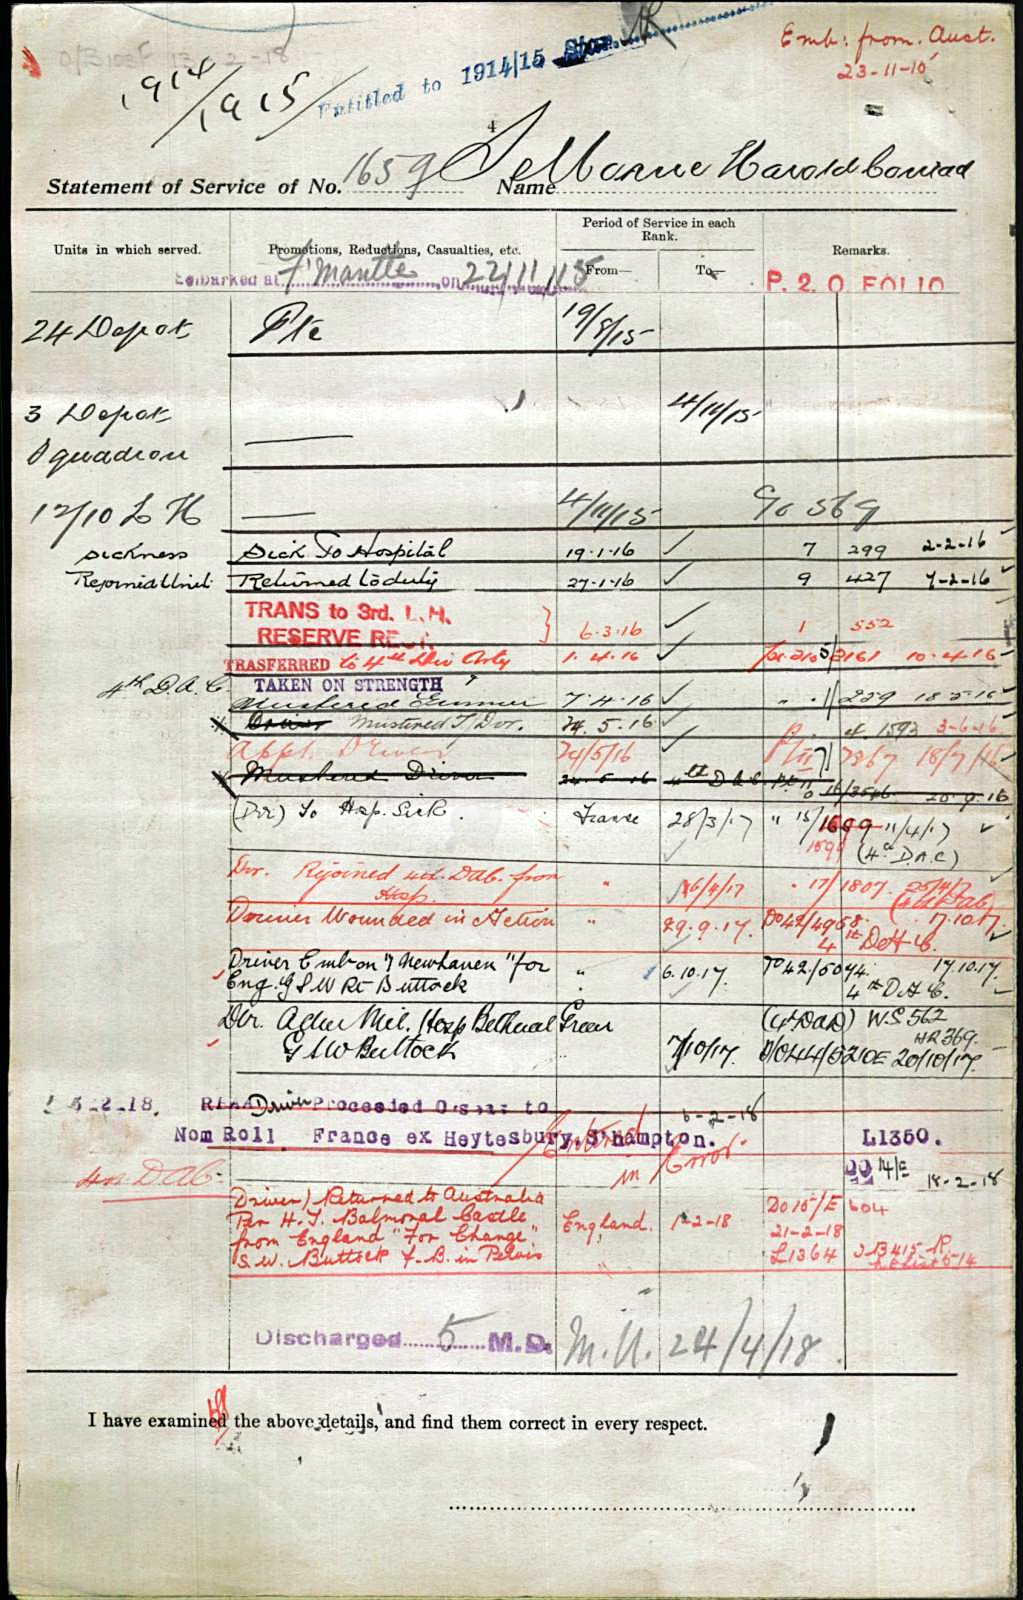 1914/1915
Entitled to 1914/15 Star
Emb: from. Aust.
23-11-15
4
Statement of Service of No. 1659 Name Harold Conrad
Units in which served.
Promotions, Reductions, Casualties, etc.
Period of Service in each Rank.
From—
To—
Remarks.
Embarked at F'Mantle on 22/11/15
P. 2. O FOLIO
24 Depot Pte 19/8/15
3 Depot 4/11/15
Squadron
12/10 L H 4/11/15 569
Sickness Sick To Hospital 19.1.16 7 299 2-2-16
Rejoined Unit Returned to duty 27.1.16 9 427 7-2-16
TRANS to 3rd. L. H.
RESERVE 6.3.16 1 552
TRASFERRED to 4th Div Arty 1.4.16 2161 10.4.16
4th D.A.C. TAKEN ON STRENGTH
Mustered Gunner 7.4.16 239 18.5.16
Driver Mustered T/Dvr. 24.5.16 1592 3-6-16
Appt. Driver 24/5/16 Pt II 71 7867 18/7/16
Mustered Driver 24.5.16 4th D.A.C. 16/3546 20.9.16
(Dvr) To Hsp. Sick. France 28/3/17 " 15/1699 11/4/17
1599 (4th D.A.C)
Dvr. Rejoined 4th DAC. from Hsp. " 16/4/17 " 17/1807 25/4/17
(4th DAC)
Driver Wounded in Action " 29.9.17. DO42/4968. 17.10.17.
4th DAC.
Driver Emb on "Newhaven" for " 6.10.17. DO42/5044. 17.10.17.
Eng. G S W Rt Buttock 4th DAC.
Dvr. Adm. Mil. Hosp Bethnal Green (4th DAC) W.S 562
HR369.
G S W Buttock 7/10/17. D/O44/5210E 20/10/17.
Driver Proceeded O'seas to 6-2-18
Nom Roll France ex Heytesbury, S'hampton. L1350.
Entered in Error.
14/E 18-2-18
4th DAC.
(Driver) Returned to Australia
Per H.T. Balmoral Castle England. 1-2-18 DO 15/E 604
from England "For Change" 21-2-18
S.W. Buttock F.B. in Pelvis L1364 B415
Discharged 5 M.D. M.U. 24/4/18
I have examined the above details, and find them correct in every respect.